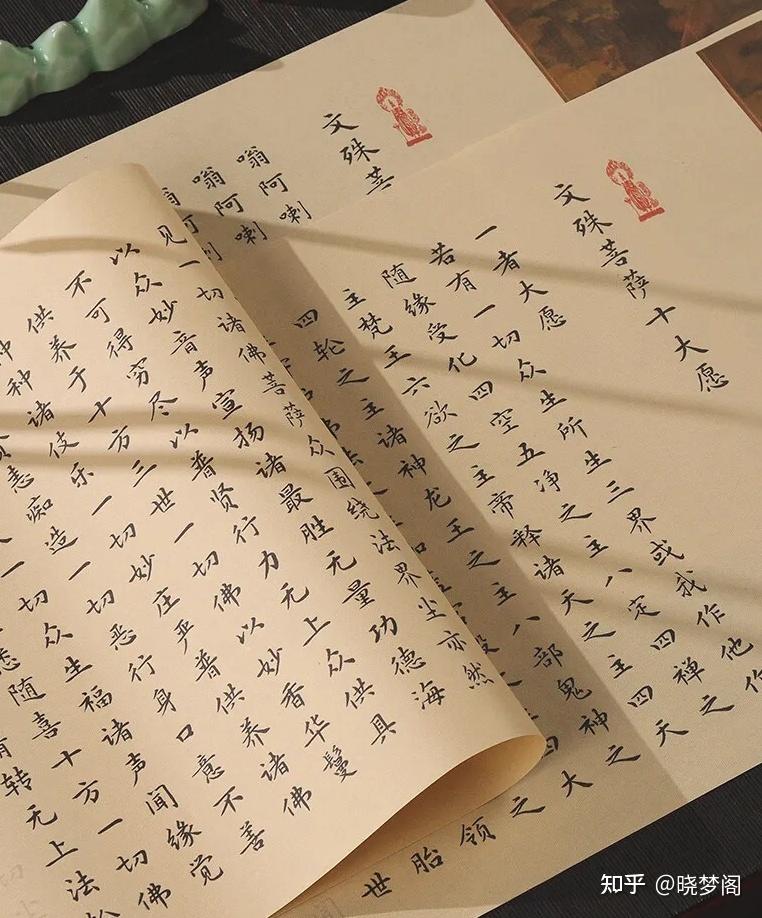 文殊菩萨十大愿
一者大愿
若有一切众生所生三界或我作他作
随缘受化四空五净之主八定四禅之
主梵王六欲之主帝释诸天之主四天
四轮之主诸神龙王之主八部鬼神之
大
之
领
胎
世
文殊菩
嗡阿喇
嗡阿喇
见一切诸佛菩萨众围绕法界尘亦然
以众妙音声宣扬诸最胜无量功德海
不可得穷尽以普贤行力无上众供具
供养于十方三世一切佛以妙香华鬘
种诸伎乐一切妙庄严普供养诸佛
恚痴造一切恶行身口意不善
一切众生福诸声闻缘觉
随喜十方一切佛
转无上法
知乎 @晓梦阁